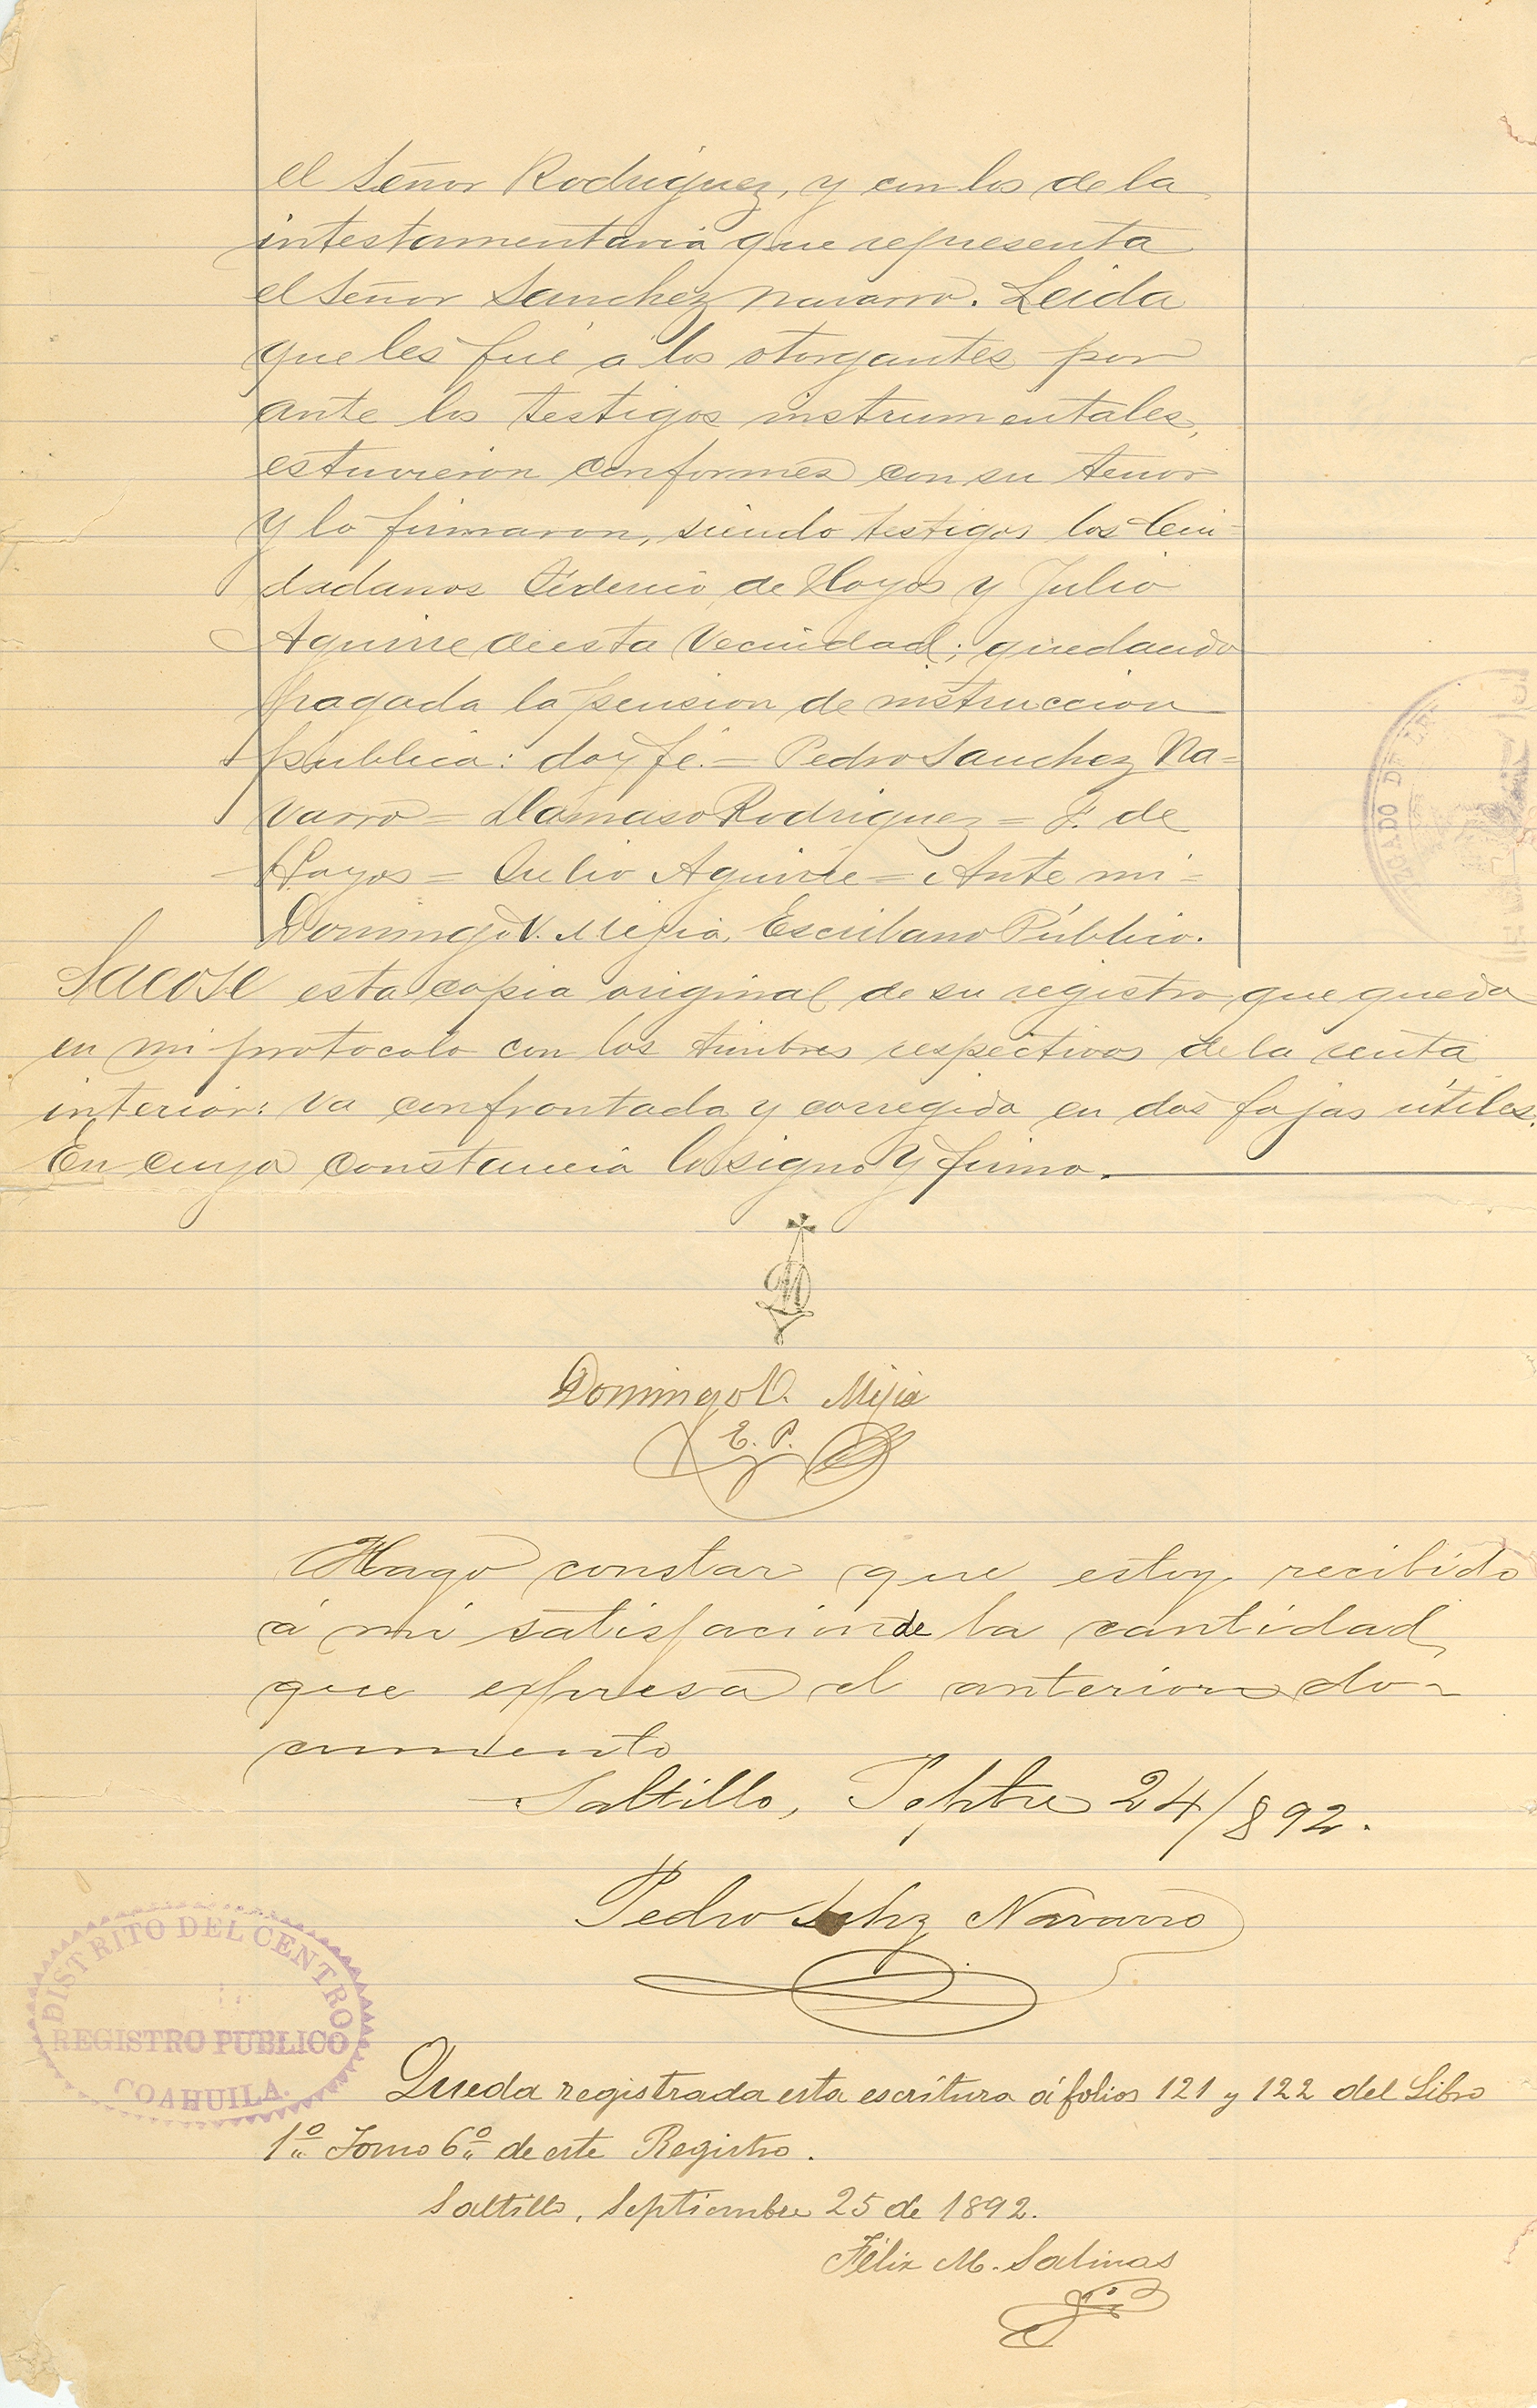 el Señor Rodriguez, y con los de la
intestamentaria que representa
el Señor Sanchez navarro. Leida
que les fué a los otorgantes por
ante los testigos instrumentales,
estuvieron conformes con su tenor
y lo firmaron, siendo testigos los Ciu-
dadanos Federico de Hoyos y Julio
Aguirre de esta Vecindad; quedando
pagada la pension de instruccion
publica: doy fé. = Pedro Sanchez Na=
varro = Damaso Rodriguez = F. de
Hoyos = Julio Aguirre = Ante mi =
Domingo V. Mejia, Escribano Público.
SACOSE esta copia original de su registro que queda
en mi protocolo con los timbres respectivos de la renta
interior: va confrontada y corregida en dos fojas útiles.
En cuya constancia lo signo y firmo.
Domingo V. Mejia
E. P.
Hago constar que estoy recibido
á mi satisfacion de la cantidad
que expresa el anterior do-
cumento
Saltillo, Sepbre 24/892.
Pedro Schz Navarro
DISTRITO DEL CENTRO
REGISTRO PUBLICO
COAHUILA.
Queda registrada esta escritura á folios 121 y 122 del Libro
1º Tomo 6º de este Registro.
Saltillo, Septiembre 25 de 1892.
Féliz M. Salinas